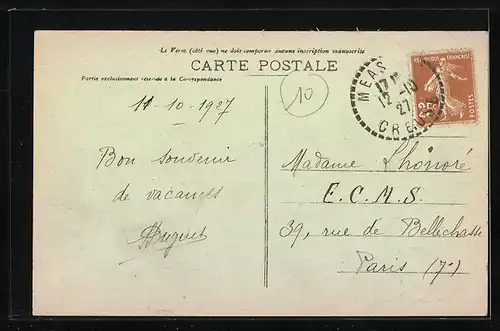 Le Verso (côté vue) ne doit comporter aucune inscription manuscrite
CARTE POSTALE
Partie exclusivement réservée à la Correspondance
11-10-1927
10
MEAS
17
12-10
27
CREUSE
REPUBLIQUE FRANÇAISE
25c
POSTES
Bon souvenir
de vacances
Madame Lhonoré
E.C.M.S.
39, rue de Bellechasse
Paris (7e)